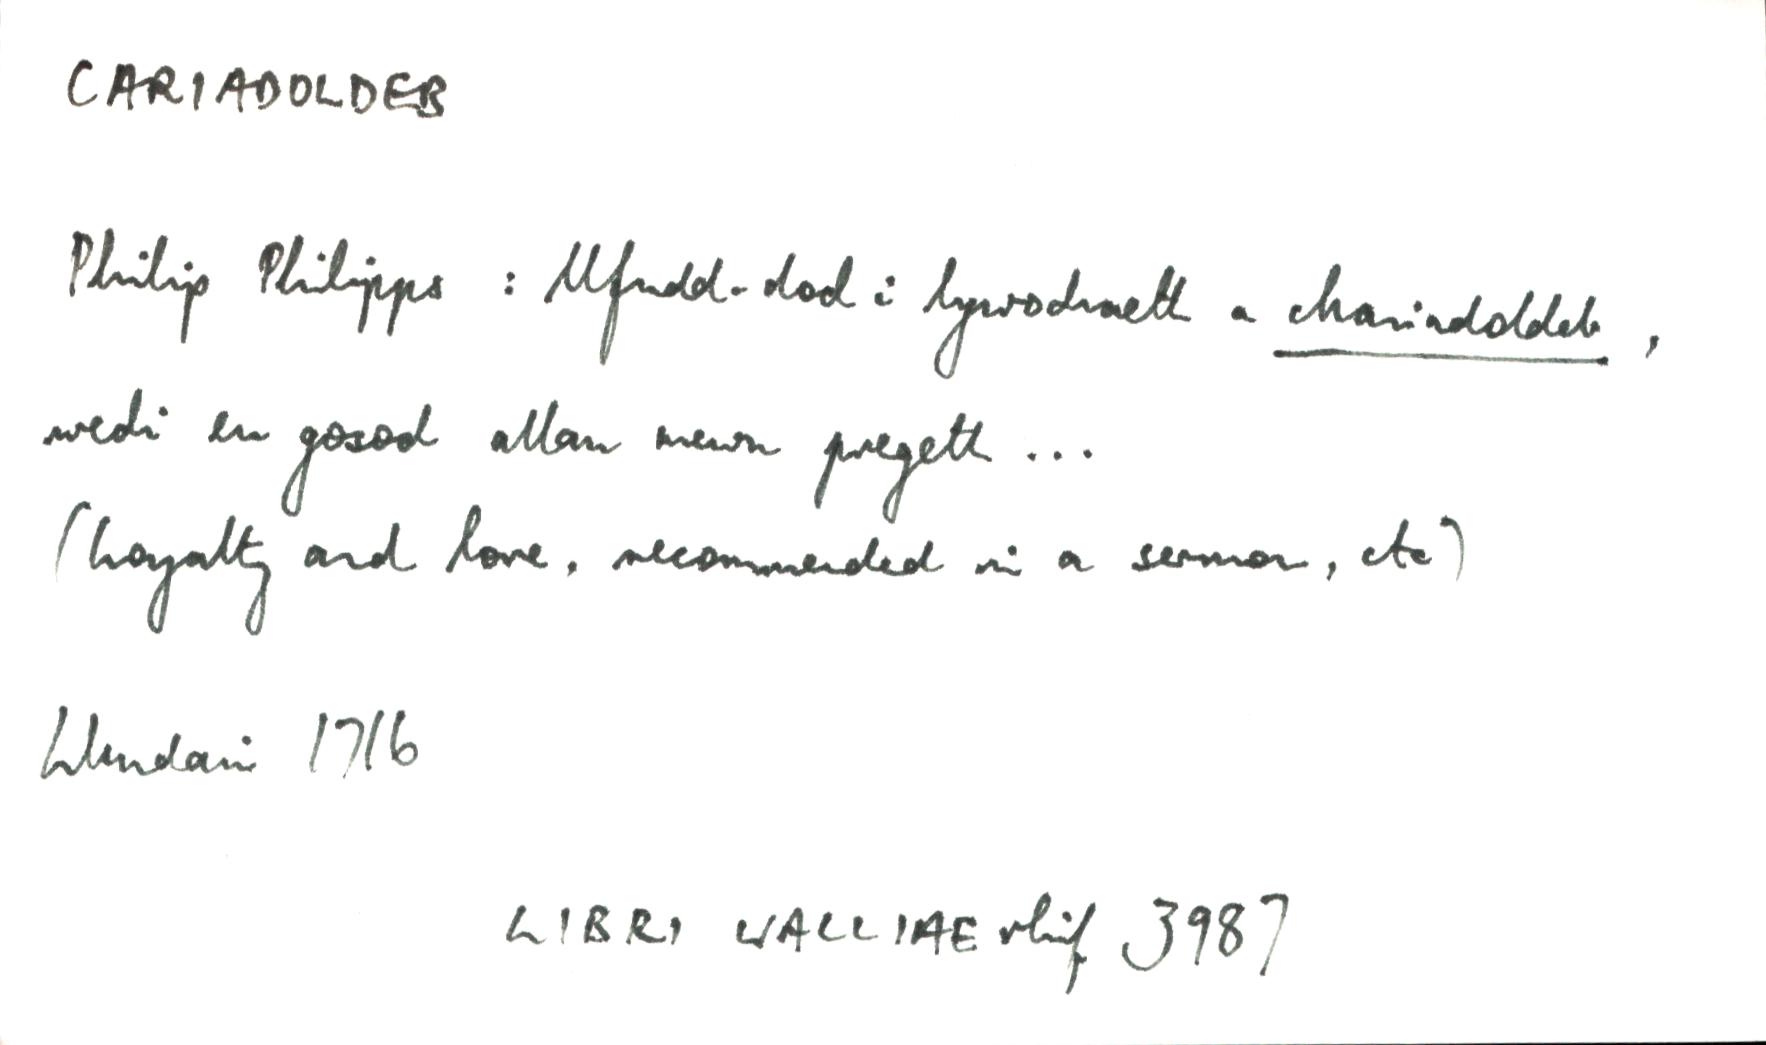 CARIADOLDEB
Philip Philipps : Ufudd-dod i lywodraeth a chariadoldeb,
wedi eu gosod allan mewn pregeth ...
(Loyalty and love, recommended in a sermon, etc)
Llundain 1716
LIBRI WALLIAE rhif 3987